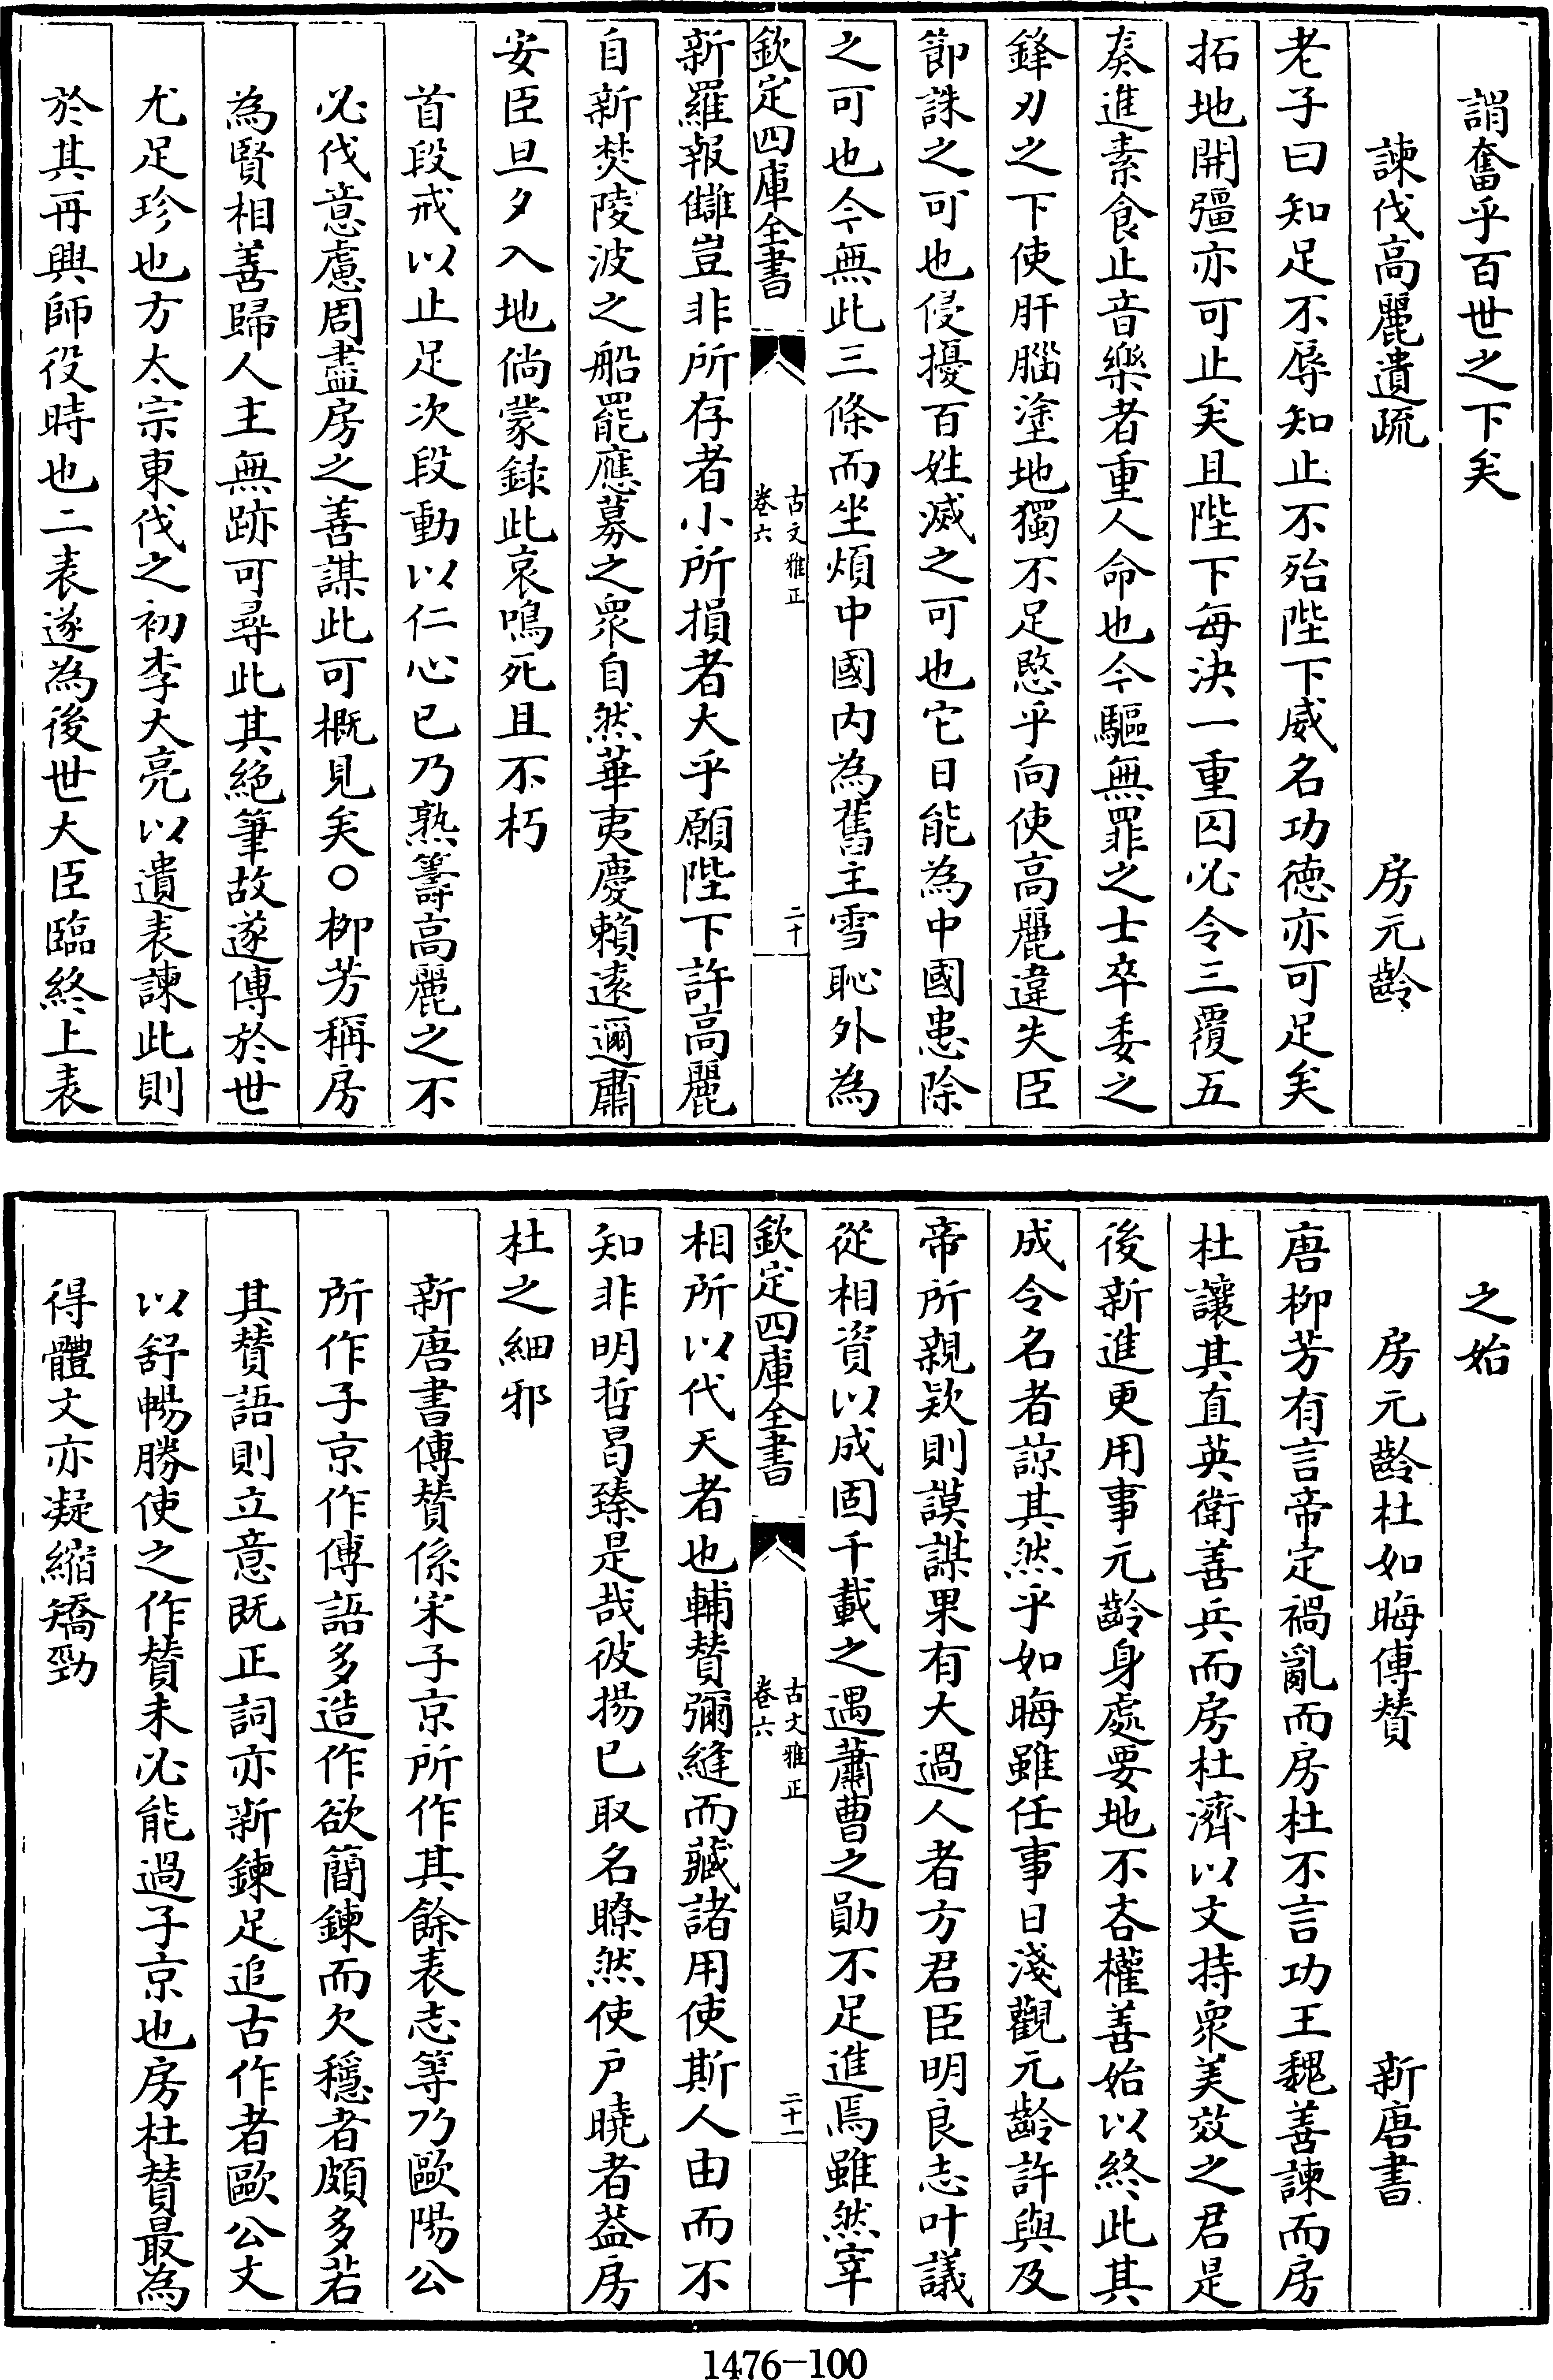 詔奮乎百世之下矣
諫伐高麗遺疏 房元齡
老子曰知足不辱知止不殆陛下威名功德亦可足矣
拓地開疆亦可止矣且陛下每決一重囚必令三覆五
奏進素食止音樂者重人命也今驅無罪之士卒委之
鋒刃之下使肝腦塗地獨不足愍乎向使高麗違失臣
節誅之可也侵擾百姓滅之可也它日能為中國患除
之可也今無此三條而坐煩中國内為舊主雪恥外為
欽定四庫全書 古文雅正 卷六 二十
新羅報讎豈非所存者小所損者大乎願陛下許高麗
自新焚陵波之船罷應募之衆自然華夷慶賴遠邇肅
安臣旦夕入地倘蒙録此哀鳴死且不朽
首段戒以止足次段動以仁心已乃熟籌高麗之不
必伐意慮周盡房之善謀此可概見矣○柳芳稱房
為賢相善歸人主無跡可尋此其絶筆故遂傳於世
尤足珍也方太宗東伐之初李大亮以遺表諫此則
於其再興師役時也二表遂為後世大臣臨終上表
之始
房元齡杜如晦傳贊 新唐書
唐柳芳有言帝定禍亂而房杜不言功王魏善諫而房
杜讓其直英衛善兵而房杜濟以文持衆美效之君是
後新進更用事元齡身處要地不吝權善始以終此其
成令名者諒其然乎如晦雖任事日淺觀元齡許與及
帝所親欵則謨謀果有大過人者方君臣明良志叶議
從相資以成固千載之遇蕭曹之勛不足進焉雖然宰
欽定四庫全書 古文雅正 卷六 二十一
相所以代天者也輔贊彌縫而藏諸用使斯人由而不
知非明哲曷臻是哉彼揚已取名瞭然使户曉者葢房
杜之細邪
新唐書傳贊係宋子京所作其餘表志等乃歐陽公
所作子京作傳語多造作欲簡鍊而欠穩者頗多若
其贊語則立意既正詞亦新鍊足追古作者歐公文
以舒暢勝使之作贊未必能過子京也房杜贊最為
得體文亦凝縮矯勁
1476-100